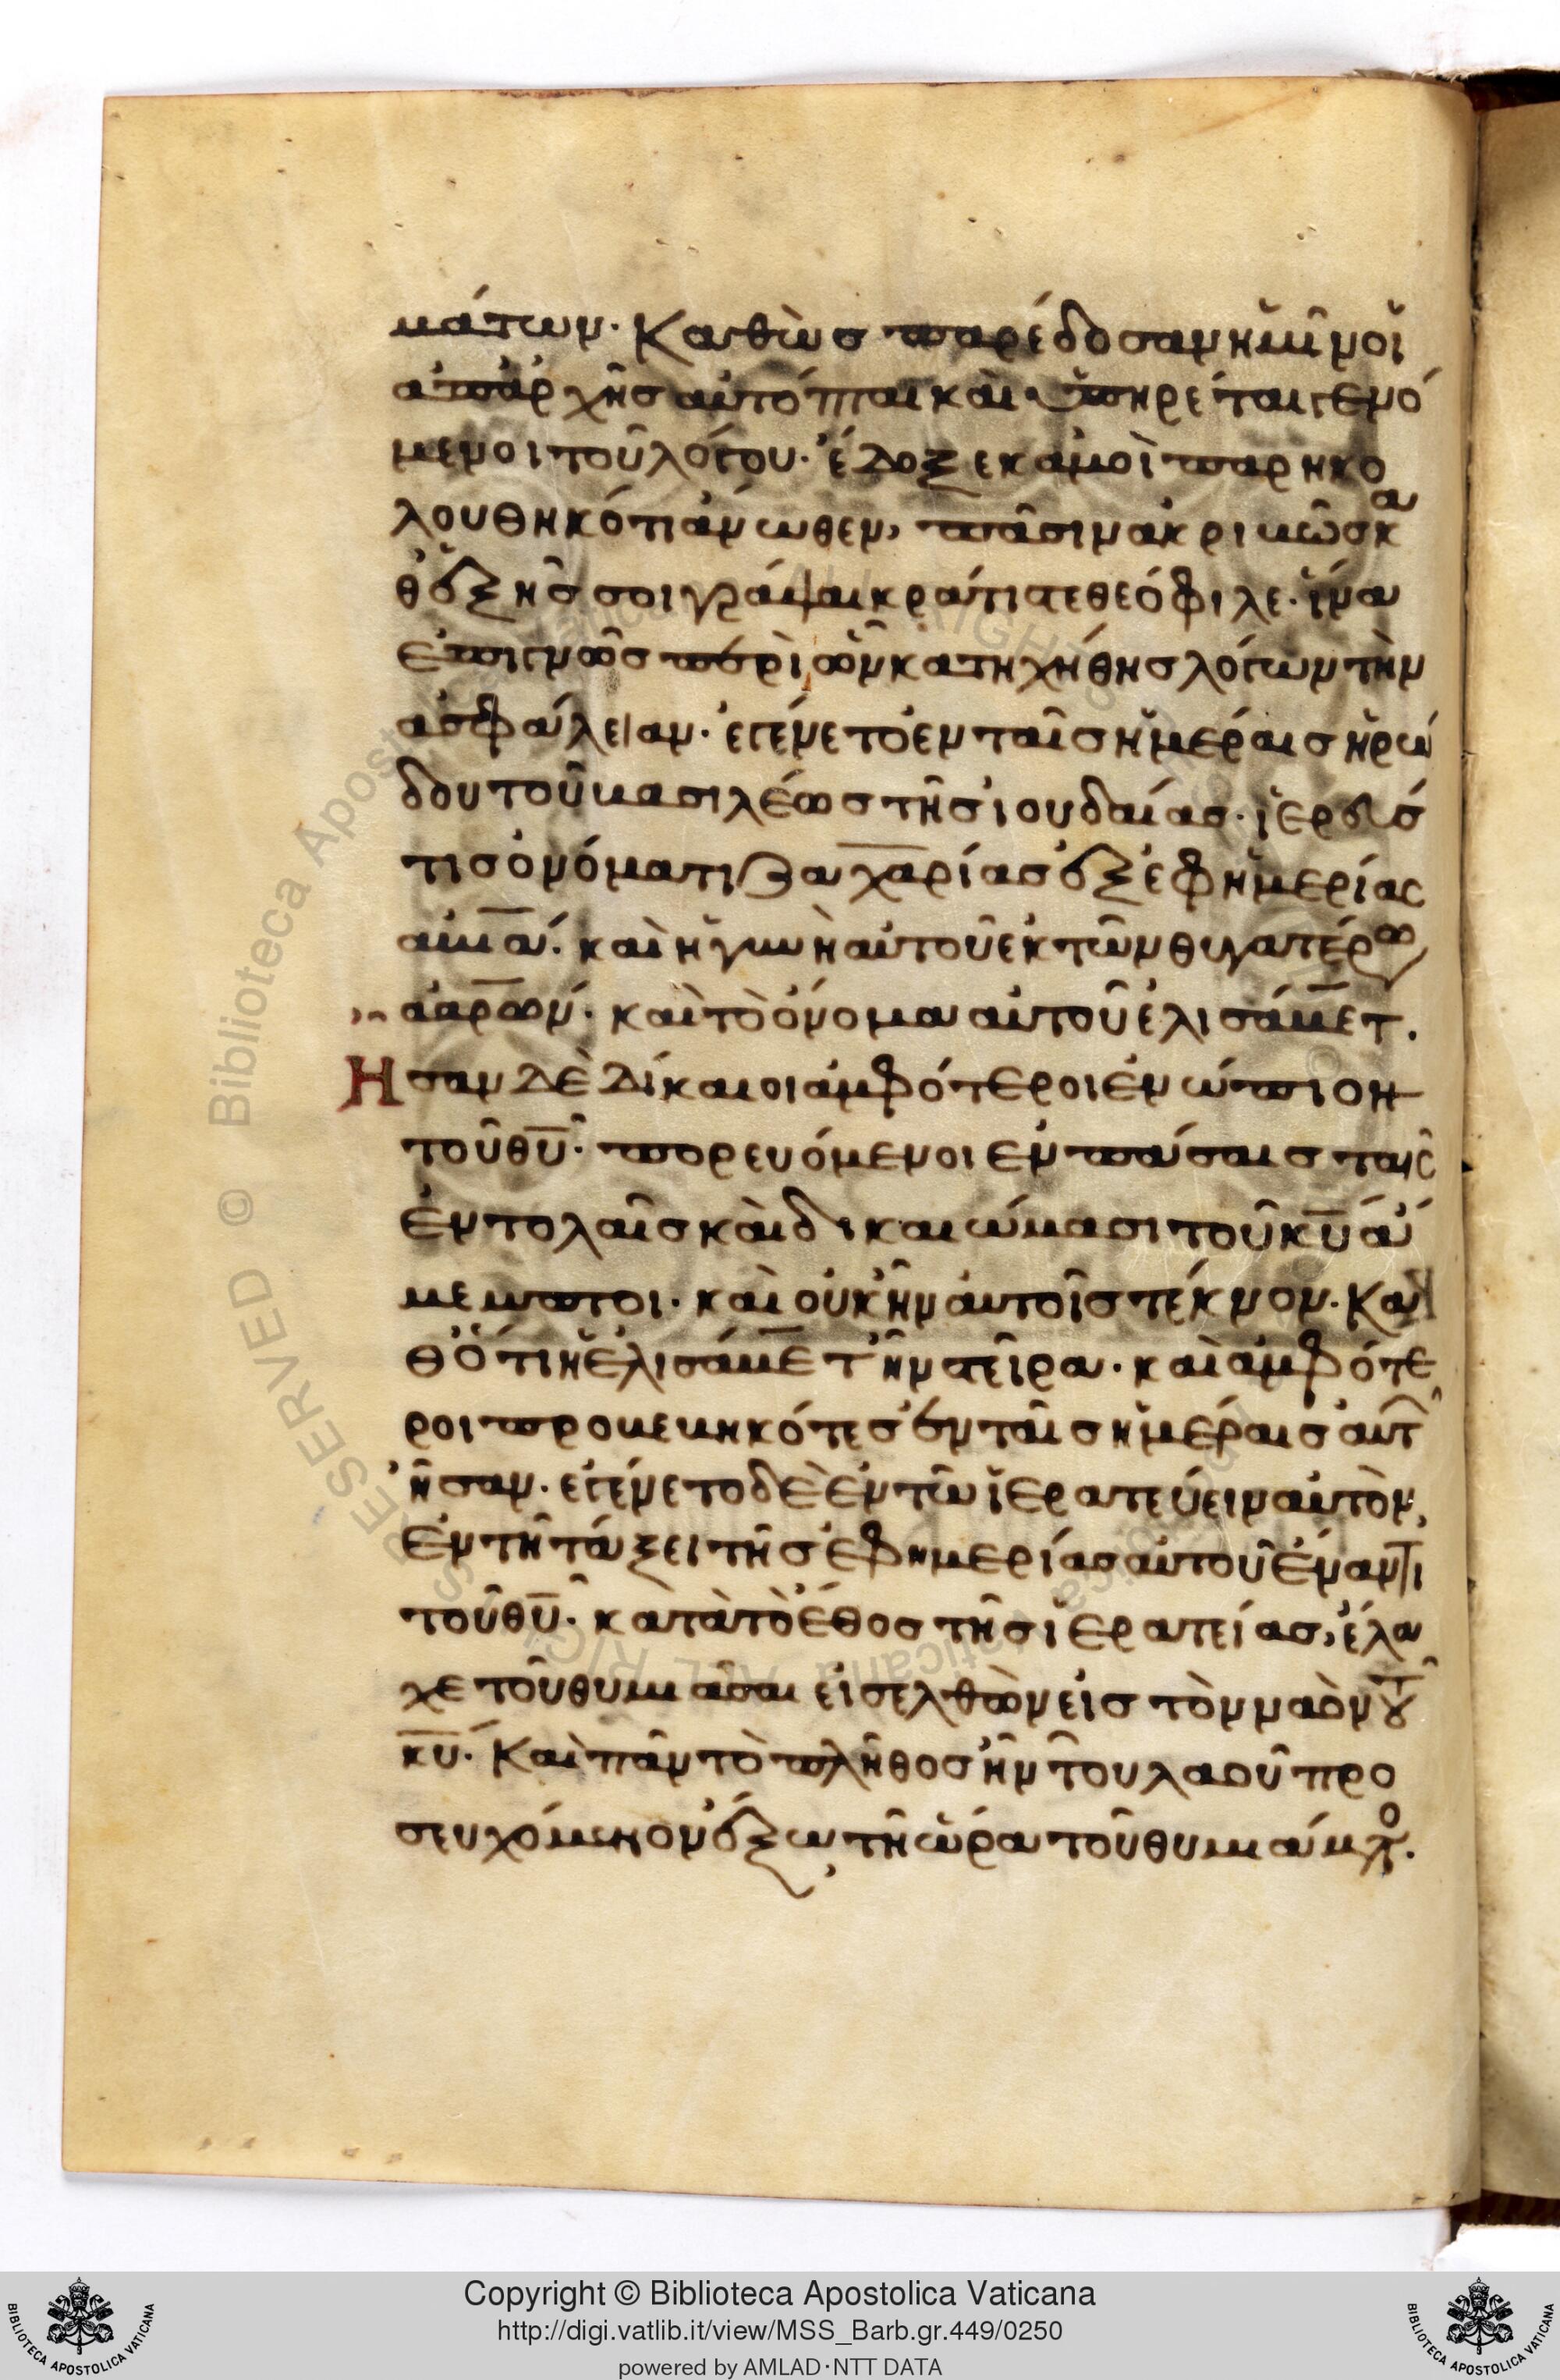 μάτων· Καθὼσ παρέδοσαν ἡμῖν οἱ
ἀπάρχῆσ αὐτόπται καὶ ὑπηρέται γενό
μενοι τοῦ λόγου· ἔδοξε κἀμοὶ παρηκο
λουθηκότι ἄνωθεν, πᾶσιν ἀκριβῶσ κα
θεξῆσ σοι γράψαι κράτιστε θεόφιλε· ἵνα
ἐπιγνῶσ περὶ ὧν κατηχήθησ λόγων τὴν
ἀσφάλειαν· ἐγένετο ἐν ταῖσ ἡμέραισ ἡρώ
δου τοῦ βασιλέωσ τῆσ ἰουδαίασ· ἱερεύσ
τισ ὀνόματι Ζαχαρίασ ἐξ ἐφημερίας
ἀβιά· καὶ ἡ γυνὴ αὐτοῦ ἐκ τῶν θυγατέρω
ἀαρών· καὶ τὸ ὄνομα αὐτοῦ ἐλισάβετ.
Ησαν δὲ δίκαιοι ἀμφότεροι ἐνώπιον
τοῦ θῡ· πορευόμενοι ἐν πάσαισ ταῖς
ἐντολαῖσ καὶ δικαιώμασι τοῦ κῡ ἄ
μεμπτοι· καὶ οὐκ ἦν αὐτοῖσ τέκνον· Κα
θότι ἡ ἐλισάβετ ἦν στεῖρα· καὶ ἀμφότε
ροι προβεβηκότεσ ἐν ταῖσ ἡμέραισ αὐτ
ἦσαν· ἐγένετο δὲ ἐν τῶ ἱερατεύειν αὐτὸν,
ἐν τῆ τάξει τῆσ ἐφημερίασ αὐτοῦ ἔναντι
τοῦ θῡ· κατὰ τὸ ἔθοσ τῆσ ἱερατείασ, ἔλα
χε τοῦ θυμιᾶσαι εἰσελθὼν εἰσ τὸν ναὸν τȣ
κῡ· Καὶ πᾶν τὸ πλῆθοσ ἦν τοῦ λαοῦ προ
σευχόμενον ἔξω τῆ ὥρα τοῦ θυμιάμτο.
Copyright © Biblioteca Apostolica Vaticana
http://digi.vatlib.it/view/MSS_Barb.gr.449/0250
powered by AMLAD·NTT DATA